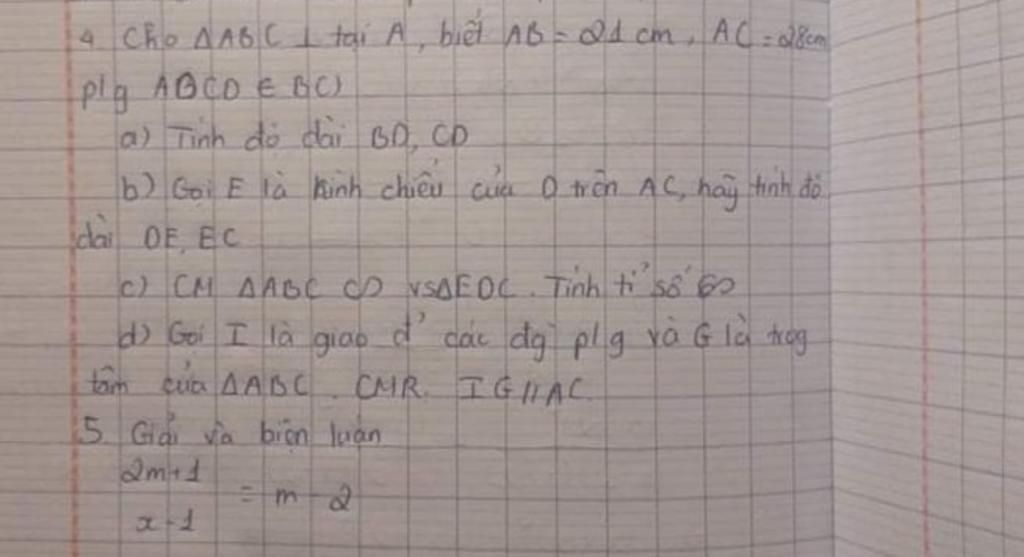 4 Cho ΔABC ⊥ tại A, biết AB = 21 cm, AC = 28cm
plg ABCD ∈ BC)
a) Tính độ dài BD, CD
b) Gọi E là hình chiếu của D trên AC, hãy tính độ
dài DE, EC
c) CM ΔABC ∽ vsΔEDC. Tính tỉ số ∽
d) Gọi I là giao đ' các đg plg và G là trog
tâm của ΔABC. CMR. IG // AC
5 Giải và biện luận
2m+1
= m - 2
x-1